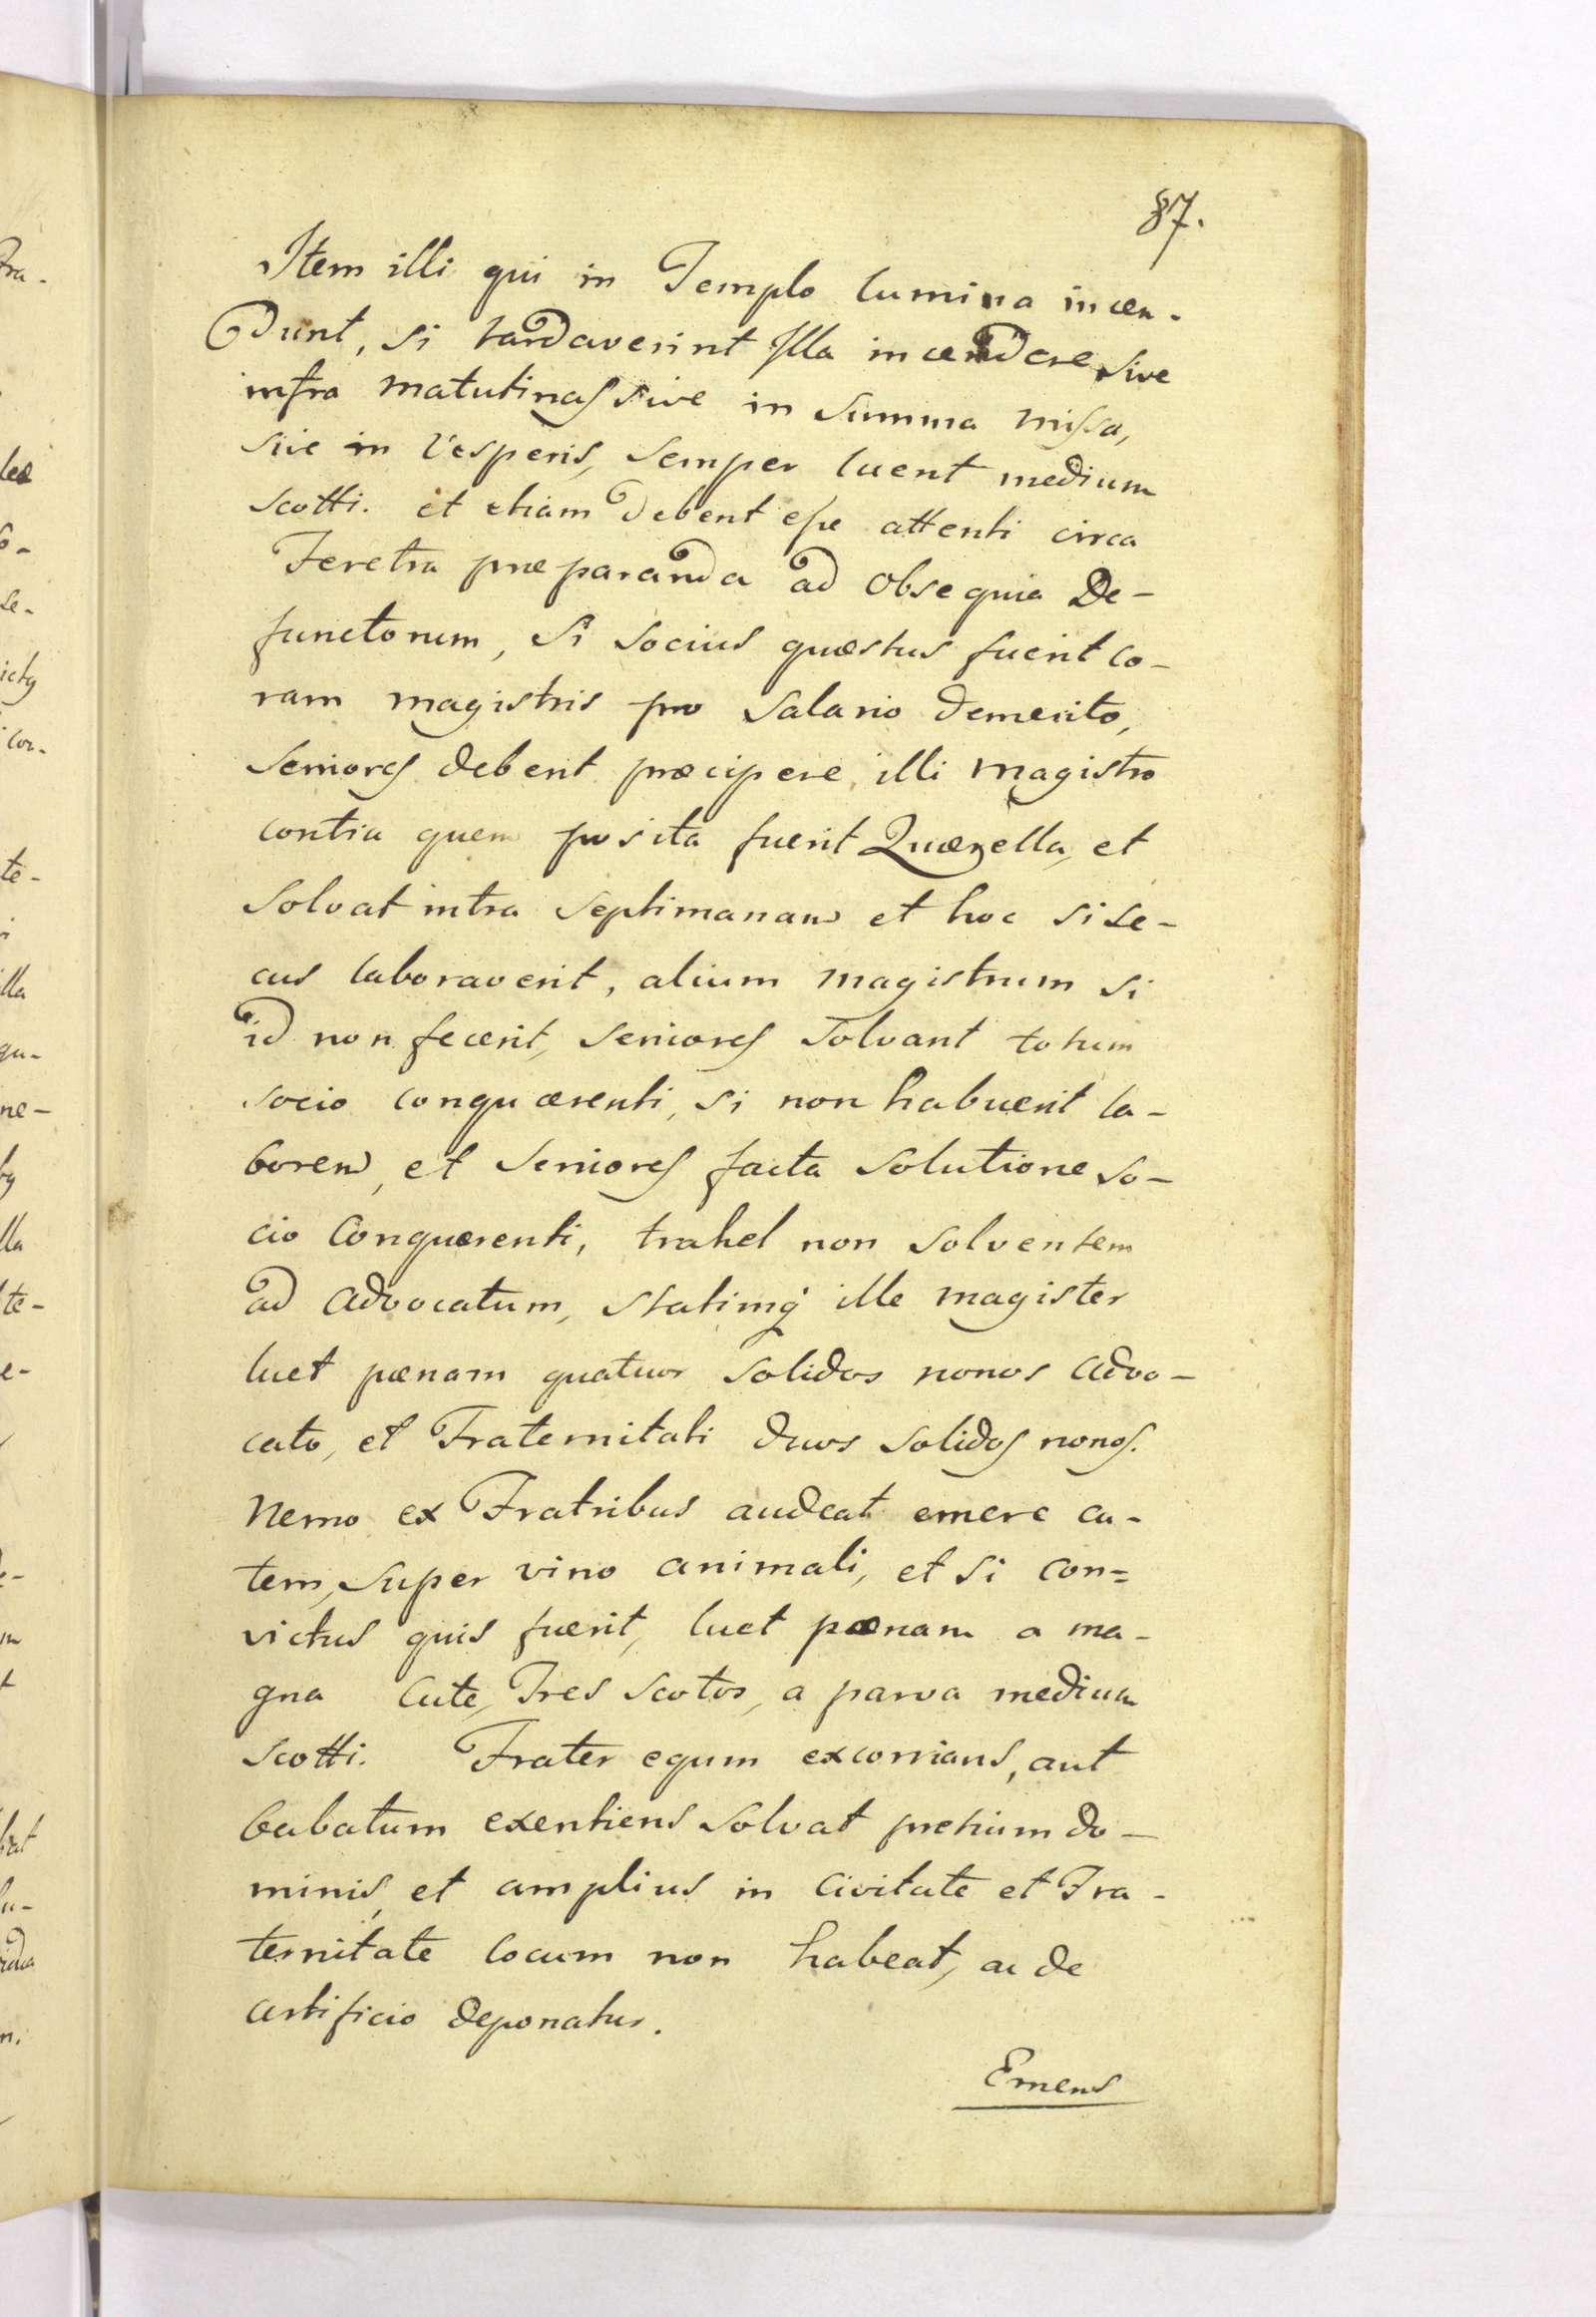 87.
Item illi qui in Templo lumina incen-
dunt, si tardaverint Illa incendere sive
infra matutinas sive in Summa missa,
sive in Vesperis, semper luent medium
scotti. et etiam debent esse attenti circa
Feretra præparanda ad Obsequia De-
functorum, Si socius quæstus fuerit co-
ram magistris pro Salario demerito,
Seniores debent præcipere illi magistro
contra quem posita fuerit Quærella, et
Solvat intra Septimanam et hoc si se-
cus laboraverit, alium magistrum si
id non fecerit, seniores solvant totum
socio conquærenti, si non habuerit la-
borem, et Seniores facta Solutione so-
cio Conquærenti, trahet non solventem
ad Advocatum, statimq ille magister
luet pœnam quatuor Solidos nonos Advo-
cato, et Fraternitati duos solidos nonos.
Nemo ex Fratribus audeat emere cu-
tem, super vino animali, et si con=
victus quis fuerit, luet pœnam a ma-
gna Cute, Tres Scotos, a parva medium
scotti. Frater equm excorrians, aut
babatum exentiens solvat pretium do-
minis, et amplius in Civitate et Fra-
ternitate locum non habeat, ac de
artificio deponatur.
Emens